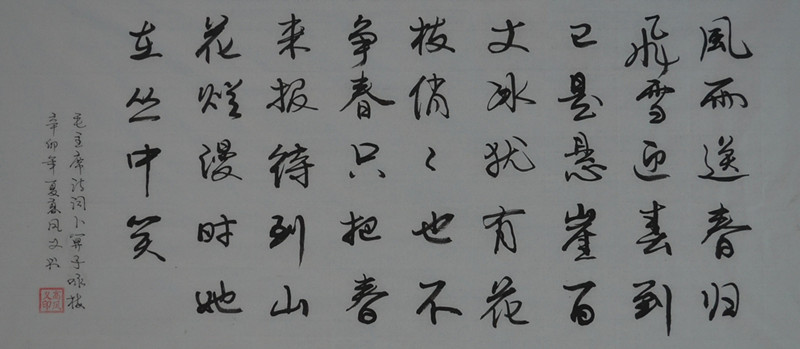 風雨送春归
飛雪迎春到
已是悬崖百
丈冰犹有花
枝俏〻也不
争春只把春
来报待到山
花烂漫时她
在丛中笑
毛主席诗词卜算子咏梅
辛卯年夏